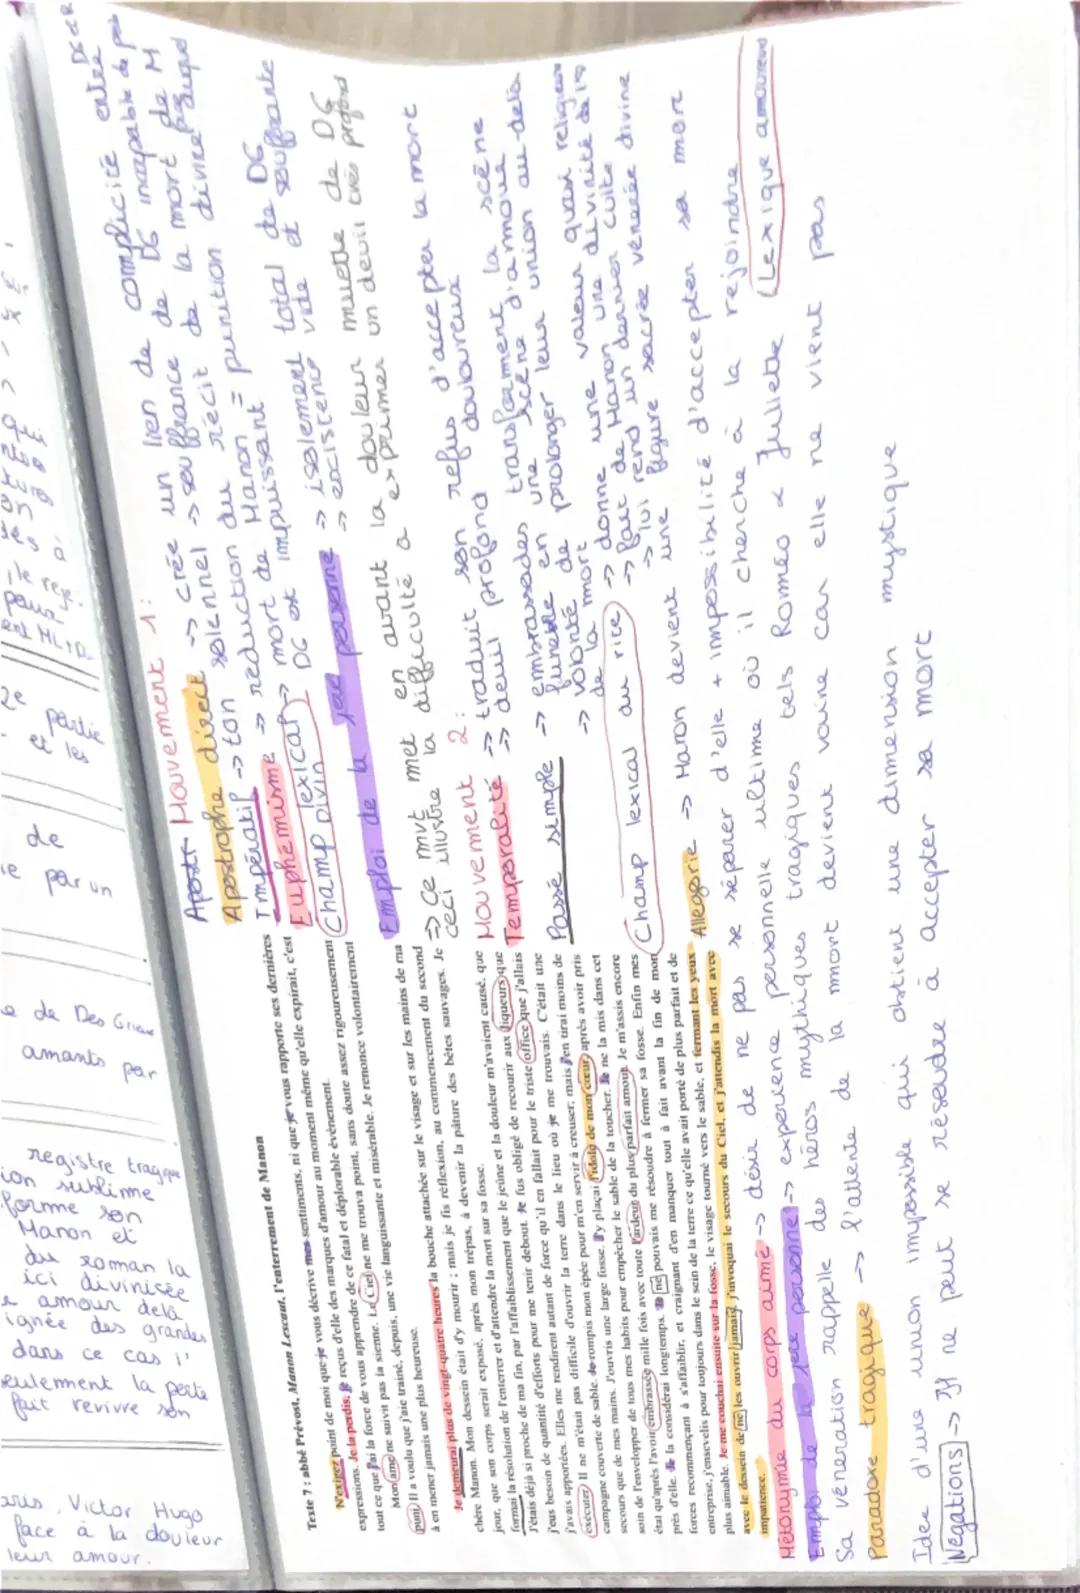 Texte 7 : abbé Prévost, Manon Lescaut, l'enterrement de Manon
N'exigez point de moi que je vous décrive mes sentiments, ni que je vous rapporte ses dernières
expressions. Je la perdis, je reçus d'elle des marques d'amour au moment même qu'elle expirait, c'est
tout ce que j'ai la force de vous apprendre de ce fatal et déplorable événement.
Mon âme ne suivit pas la sienne. Le Ciel ne me trouva point, sans doute assez rigoureusement
puni. Il a voulu que j'aie traîné, depuis, une vie languissante et misérable. Je renonce volontairement
à en mener jamais une plus heureuse.
Je demeurai plus de vingt-quatre heures la bouche attachée sur le visage et sur les mains de ma
chère Manon. Mon dessein était d'y mourir ; mais je fis réflexion, au commencement du second
jour, que son corps serait exposé, après mon trépas, à devenir la pâture des bêtes sauvages. Je
formai la résolution de l'enterrer et d'attendre la mort sur sa fosse.
J'étais déjà si proche de ma fin, par l'affaiblissement que le jeûne et la douleur m'avaient causé, que
j'eus besoin de quantité d'efforts pour me tenir debout. Je fus obligé de recourir aux liqueurs que
j'avais apportées. Elles me rendirent autant de force qu'il en fallait pour le triste office que j'allais
exécuter. Il ne m'était pas difficile d'ouvrir la terre dans le lieu où je me trouvais. C'était une
campagne couverte de sable. Je rompis mon épée pour m'en servir à creuser, mais j'en tirai moins de
secours que de mes mains. J'ouvris une large fosse. J'y plaçai l'idole de mon cœur, après avoir pris
soin de l'envelopper de tous mes habits pour empêcher le sable de la toucher. Je ne la mis dans cet
état qu'après l'avoir embrassée mille fois avec toute l'ardeur du plus parfait amour. Je m'assis encore
près d'elle. Je la considérai longtemps. Je ne pouvais me résoudre à fermer sa fosse. Enfin mes
forces recommençant à s'affaiblir, et craignant d'en manquer tout à fait avant la fin de mon
entreprise, j'ensevelis pour toujours dans le sein de la terre ce qu'elle avait porté de plus parfait et de
plus aimable. Je me couchai ensuite sur la fosse, le visage tourné vers le sable, et fermant les yeux
avec le dessein de ne les ouvrir jamais, j'invoquai le secours du Ciel, et j'attendis la mort avec
impatience.
Mouvement 1:
Apostrophe direct -> crée un lien de complicité entre
Impératif -> ton solennel -> souffrance de DG incapable de
Euphémisme -> reduction du récit de la mort de M
Champ lexical divin -> mort de Manon = punition divine
DG est impuissant
Emploi de la 1ere personne -> isolement total de DG
-> existence vide et souffrante
=> Ce mvt met en avant la douleur muette de DG
ceci illustre la difficulté à exprimer un deuil très profond
Mouvement 2:
Temporalité -> traduit son refus d'accepter la mort
-> deuil profond douloureux
Passé simple -> embrassades transforment la scène
funèbre en une scène d'amour
-> volonté de prolonger leur union au-delà
de la mort
Champ lexical du rite -> donne une valeur quasi religieuse
-> fait de Manon une divinité
-> lui rend un dernier culte
Allégorie -> Manon devient une figure sacrée vénérée divine
Métonymie du corps aimé -> désir de ne pas se séparer d'elle + impossibilité d'accepter sa mort
Emploi de la 1ere personne -> expérience personnelle ultime où il cherche à la rejoindre
Sa vénération rappelle des héros mythiques tragiques tels Roméo & Juliette (Lexique amoureux
Paradoxe tragique -> l'attente de la mort devient vaine car elle ne vient pas
Idée d'une union impossible qui obtient une dimension mystique
Négations -> Il ne peut se résoudre à accepter sa mort
partie
et les
de
par un
de Des Grieux
amants par
registre tragique
sublime
forme son
Manon et
du roman la
ici divinisée
amour delà
ignée des grandes
dans ce cas
seulement la perte
fait revivre son
Victor Hugo
face à la douleur
leur amour.